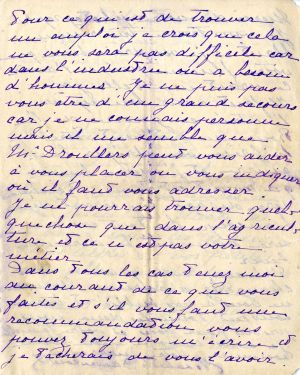 Pour ce qui est de trouver
un emploi je crois que cela
ne vous sera pas difficile car
dans l'industrie on a besoin
d'hommes. Je ne puis pas
vous être d'un grand secours
car je ne connais personne
mais il me semble que
Mr Droulers peut vous aider
à vous placer ou vous indiquer
où il faut vous adresser.
Je ne pourrais trouver quel-
quechose que dans l'agricul-
ture et ce n'est pas votre
métier.
Dans tous les cas tenez moi
au courant de ce que vous
faites et s'il vous faut une
recommandation vous
pouvez toujours m'écrire et
je tâcherais de vous l'avoir.